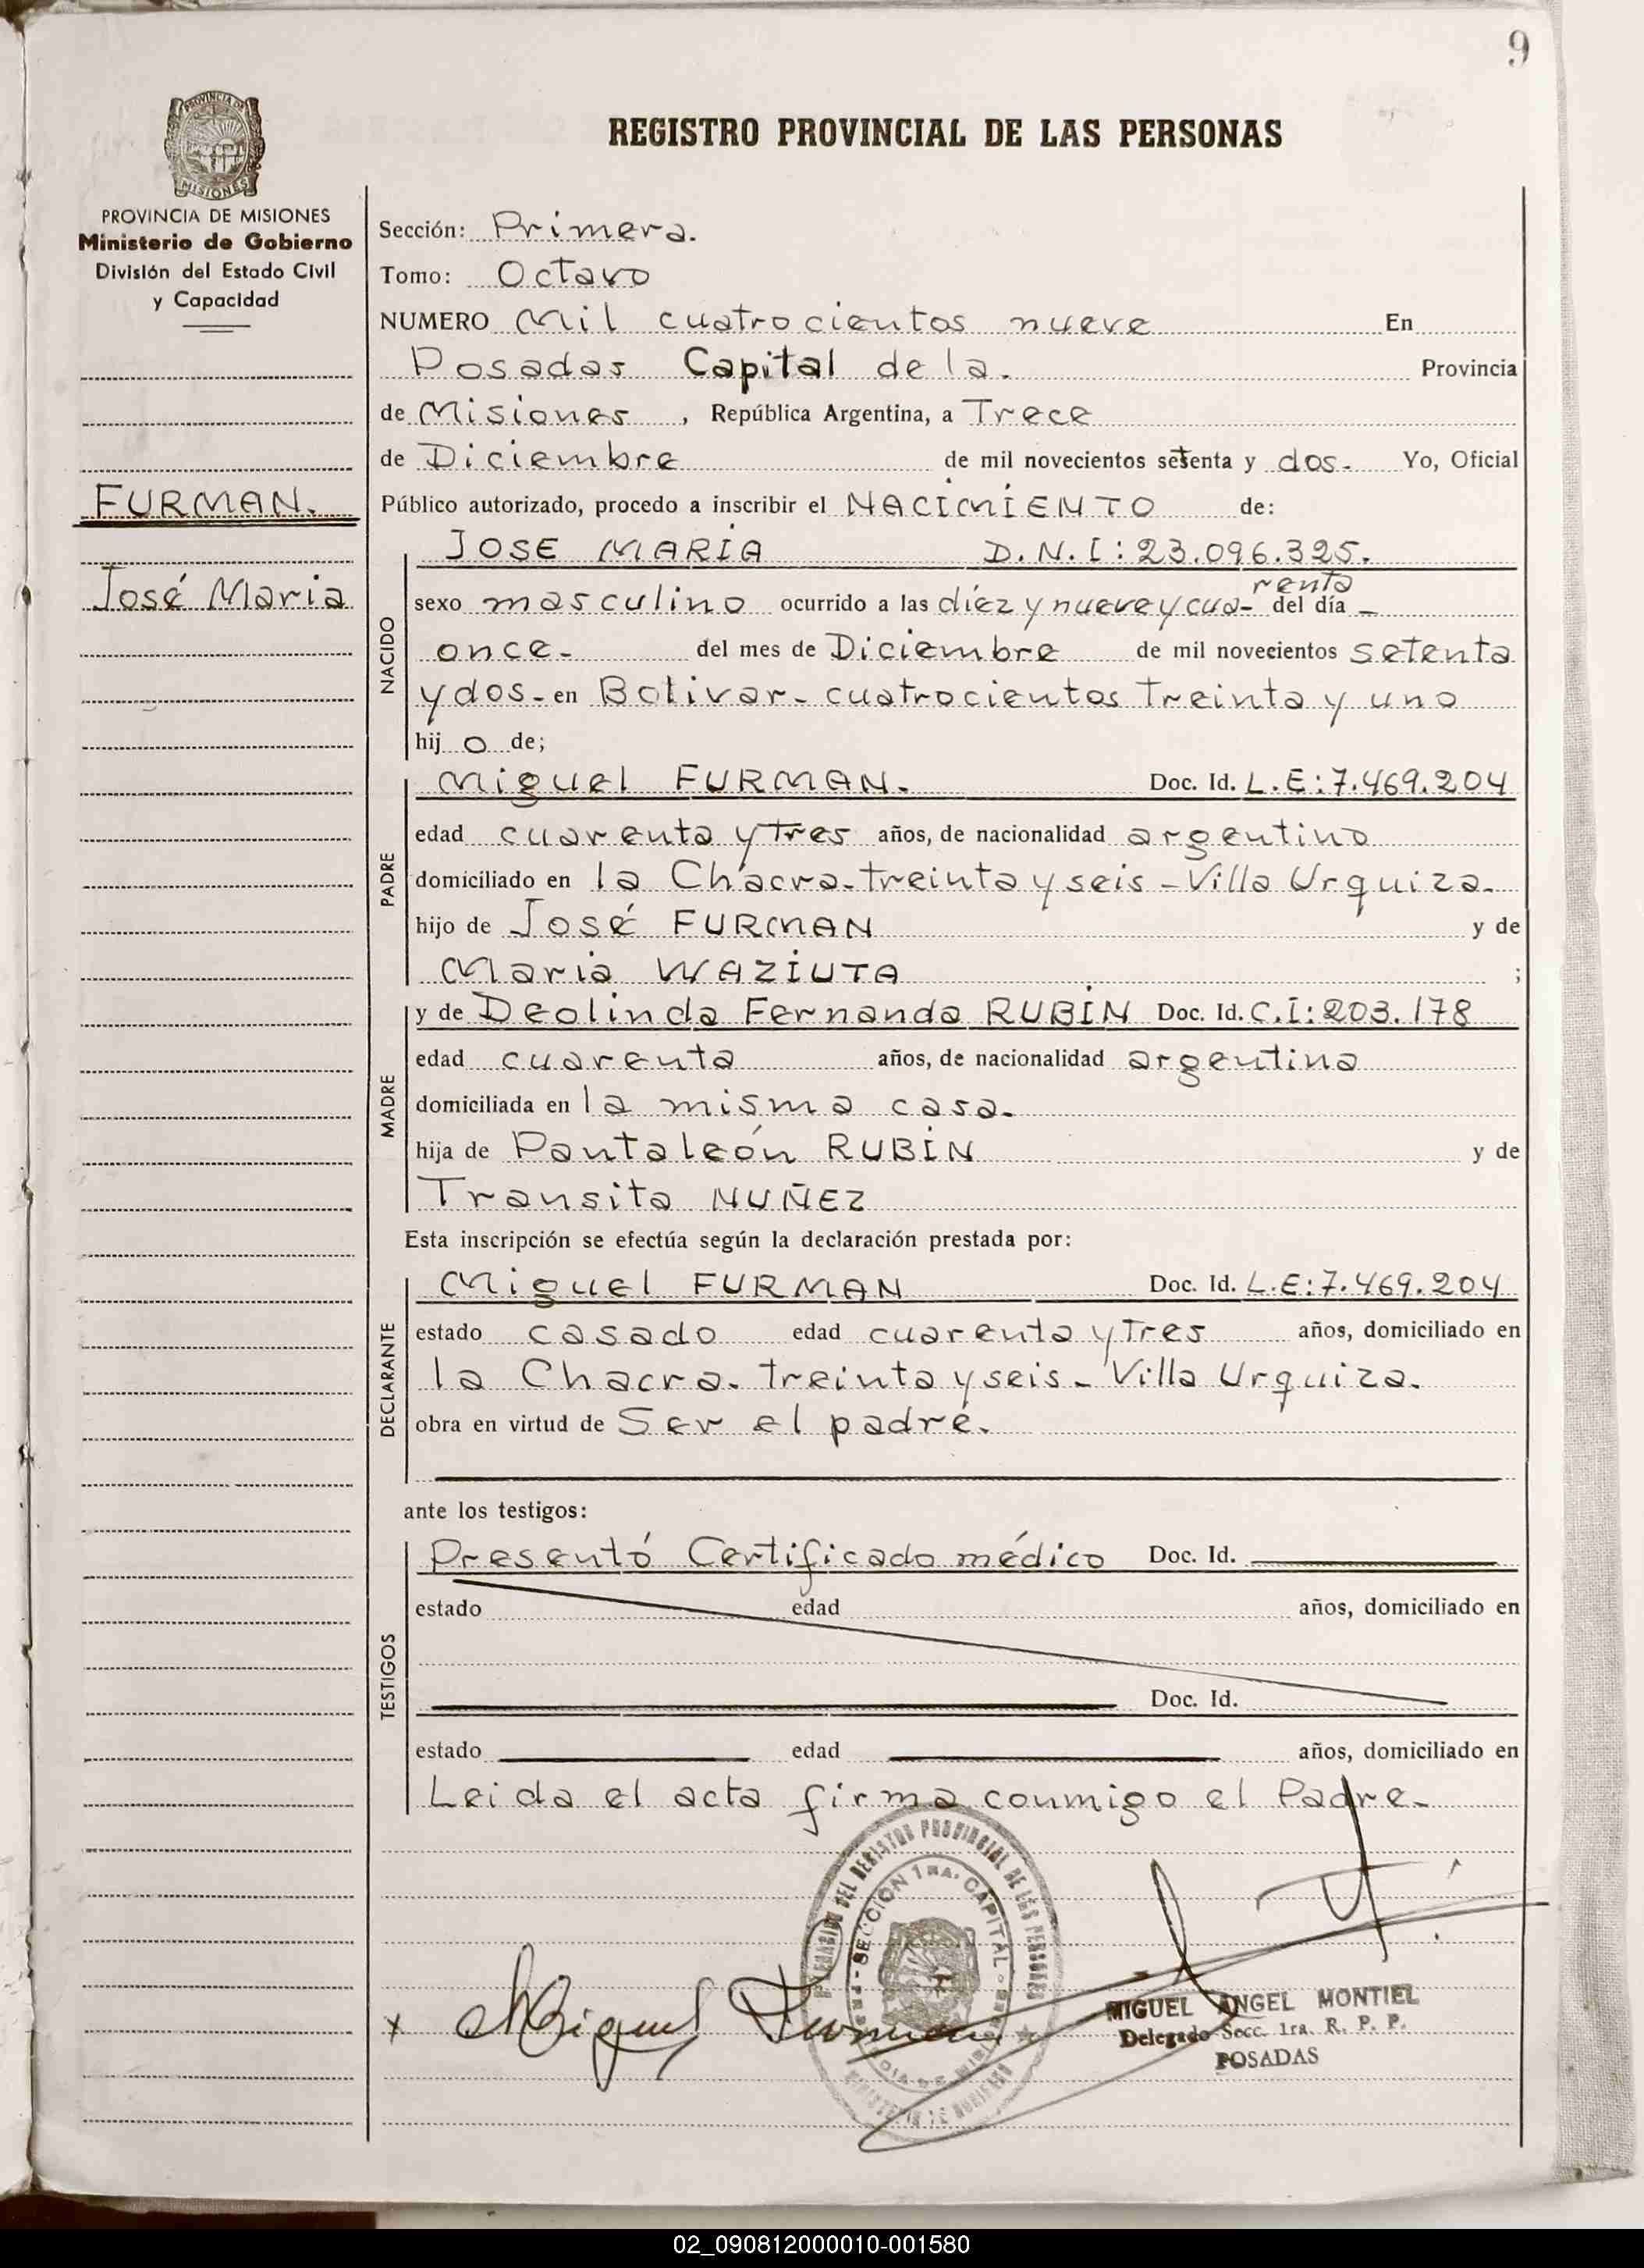 9
PROVINCIA DE
MISIONES
REGISTRO PROVINCIAL DE LAS PERSONAS
PROVINCIA DE MISIONES
Ministerio de Gobierno
División del Estado Civil
y Capacidad
FURMAN.
José Maria
Sección: Primera.
Tomo: Octavo
NUMERO Mil cuatrocientos nueve En
Posadas Capital de la. Provincia
de Misiones, República Argentina, a Trece
de Diciembre de mil novecientos setenta y dos- Yo, Oficial
Público autorizado, procedo a inscribir el NACIMIENTO de:
NACIDO
JOSE MARIA D.N.I: 23.096.325.
renta
sexo masculino ocurrido a las diez y nueve y cua- del día -
once- del mes de Diciembre de mil novecientos setenta
y dos- en Bolivar- cuatrocientos treinta y uno
hij o de;
PADRE
Miguel FURMAN. Doc. Id. L.E:7.469.204
edad cuarenta y tres años, de nacionalidad argentino
domiciliado en la Chacra-treinta y seis - Villa Urquiza-
hijo de José FURMAN y de
Maria WAZIUTA ;
MADRE
y de Deolinda Fernanda RUBIN Doc. Id. C.I: 203.178
edad cuarenta años, de nacionalidad argentina
domiciliada en la misma casa-
hija de Pantaleón RUBIN y de
Transita NUÑEZ
Esta inscripción se efectúa según la declaración prestada por:
DECLARANTE
Miguel FURMAN Doc. Id. L.E:7.469.204
estado casado edad cuarenta y tres años, domiciliado en
la Chacra- treinta y seis- Villa Urquiza.
obra en virtud de Ser el padre.
ante los testigos:
TESTIGOS
Presentó Certificado médico Doc. Id.
estado edad años, domiciliado en
Doc. Id.
estado edad años, domiciliado en
Leida el acta firma conmigo el Padre-
DEL REGISTRO PROVINCIAL DE LAS PERSONAS
SECCION 1RA. CAPITAL
x Miguel Furman
MIGUEL ANGEL MONTIEL
Delegado Secc. 1ra. R. P. P.
POSADAS
02_090812000010-001580